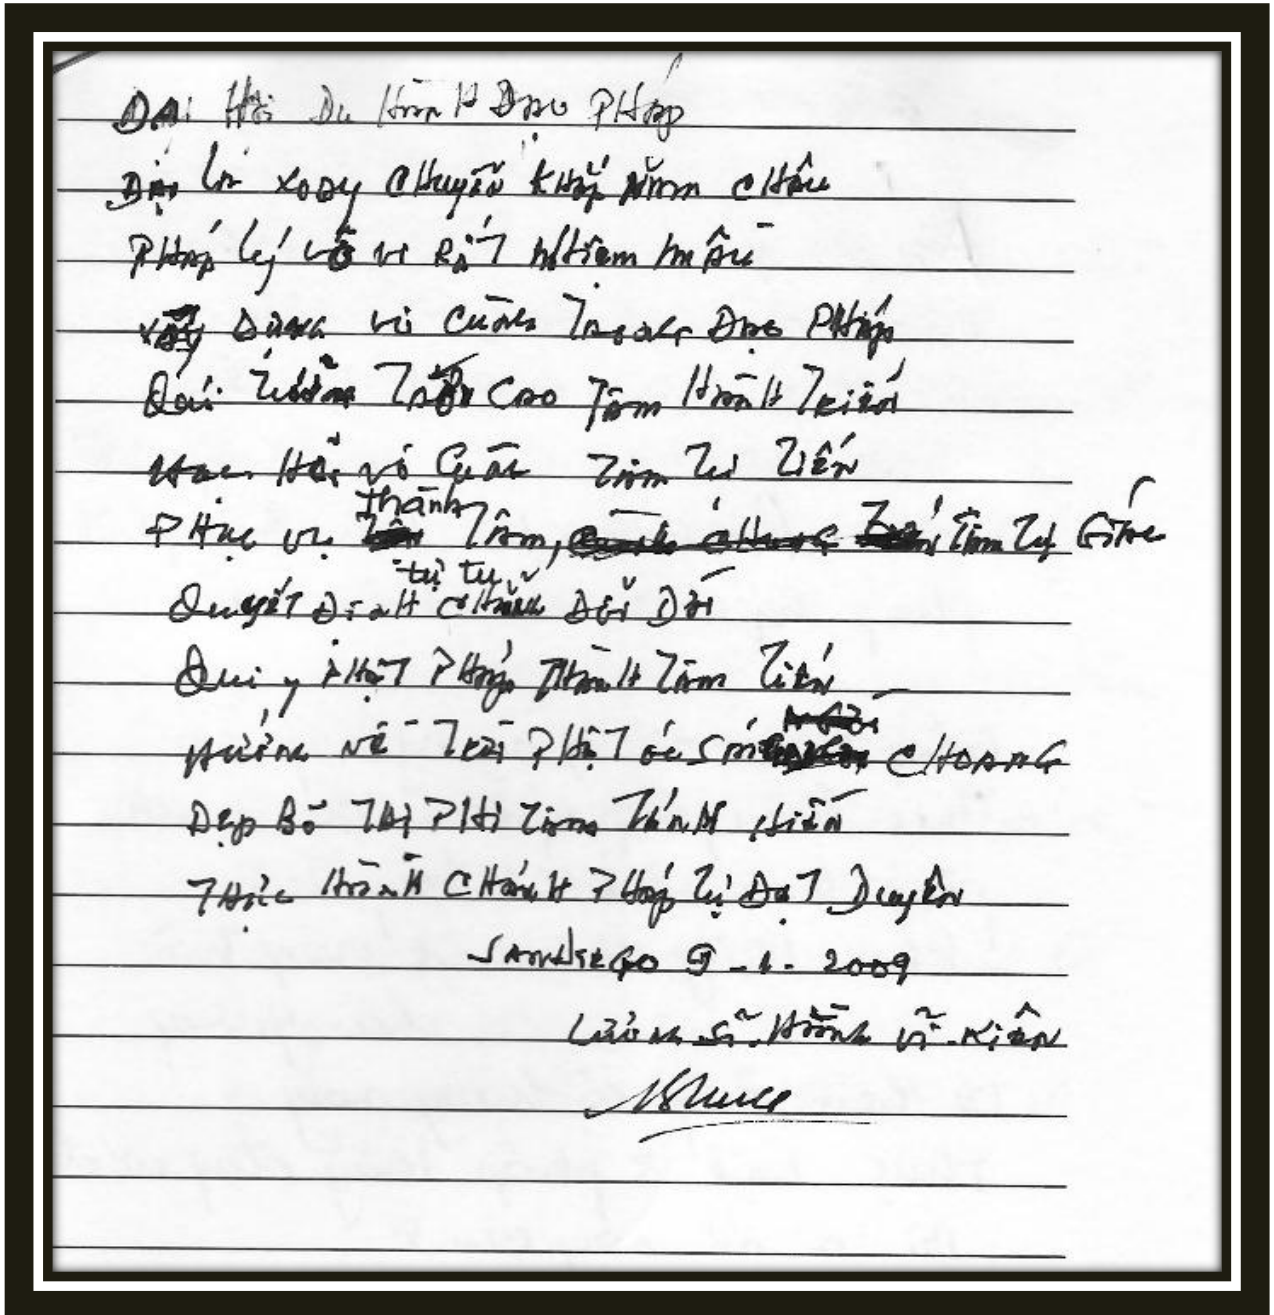 Đại Hội Du Hành Đạo Pháp
Đạo lý xoay chuyển khắp năm châu
Pháp lý vô vi rất nhiệm mầu
xây Dựng vô cùng Trong Đạo Pháp
Quí tưởng Trời cao Tâm Hành Triển
Học Hỏi vô Cùng Tâm Tự Tiến
thành
Phục vụ Tâm, Tâm Tự Giác
tự tu
Quyết Định chẳng Dối Dá
Qui y Phật Pháp Thành Tâm Tiến
Hướng về Trời Phật óc Sáng CHOANG
Dẹp Bỏ Thị Phi Tâm Tánh Hiền
Thực Hành CHánh Pháp Tự Đạt Duyên
SanDiego 9-1-2009
Lương Sĩ Hằng Vĩ Kiên